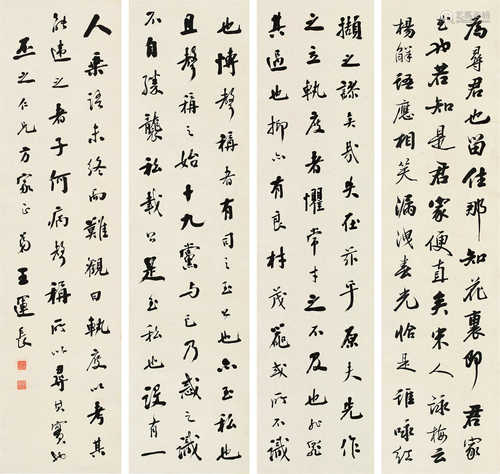 為尋君也留佳那知花裏即君家
也若知是君家便直矣宋人詠梅云
楊解語應相笑漏洩春光恰是誰咏紅
之謬矣哉失在茲乎原夫先作
之立執度者懼常才之不及也非
其過也抑亦有良材茂範或所不識
也博聲稱者有司之至公也亦至私也
且聲稱之始十九黨与已乃惑之識
不自勝襲私載公是至私也設有一
人乗語未終而難觀曰執度以考其
能違之者子何病聲稱所以尋其實也
丕之仁兄方家正 弟王運長